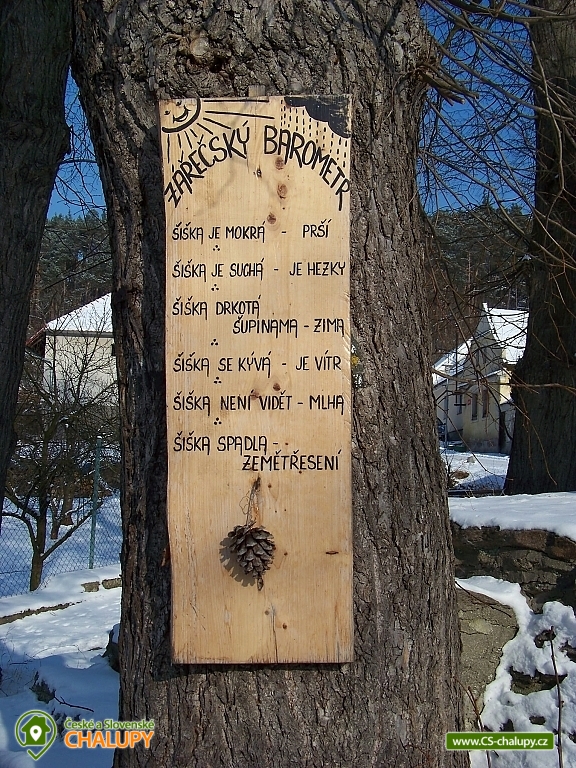 ZÁŘEČSKÝ BAROMETR
ŠIŠKA JE MOKRÁ - PRŠÍ
ŠIŠKA JE SUCHÁ - JE HEZKY
ŠIŠKA DRKOTÁ
ŠUPINAMA - ZIMA
ŠIŠKA SE KÝVÁ - JE VÍTR
ŠIŠKA NENÍ VIDĚT - MLHA
ŠIŠKA SPADLA -
ZEMĚTŘESENÍ
České a Slovenské
CHALUPY
www.CS-chalupy.cz